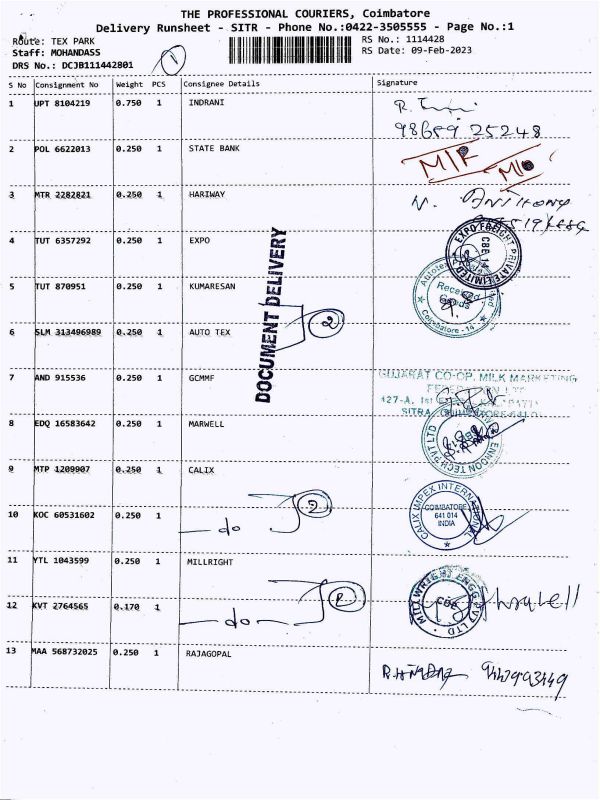 THE PROFESSIONAL COURIERS, Coimbatore
Delivery Runsheet - SITR - Phone No.:0422-3505555 - Page No.:1
Route: TEX PARK
RS No.: 1114428
Staff: MOHANDASS
RS Date: 09-Feb-2023
DRS No.: DCJB111442801
1
S No Consignment No Weight PCS Consignee Details Signature
1 UPT 8104219 0.750 1 INDRANI
98659 25248
2 POL 6622013 0.250 1 STATE BANK
3 MTR 2282821 0.250 1 HARIWAY
4 TUT 6357292 0.250 1 EXPO
EXPO FREIGHT PRIVATE LIMITED
CBE
DOCUMENT DELIVERY
5 TUT 870951 0.250 1 KUMARESAN
Received
Goods
Coimbatore - 14
2
6 SLM 313496989 0.250 1 AUTO TEX
7 AND 915536 0.250 1 GCMMF
GUJARAT CO-OP. MILK MARKETING
127-A, 1st
SITRA, COIMBATORE
8 EDQ 16583642 0.250 1 MARWELL
TECH PVT LTD
9 MTP 1209907 0.250 1 CALIX
CALIX IMPEX INTERNATIONAL
COIMBATORE
641 014
INDIA
10 KOC 60531602 0.250 1 do 2
11 YTL 1043599 0.250 1 MILLRIGHT
MILLWRIGHT ENGG PVT LTD
CBE
12 KVT 2764565 0.170 1 do
13 MAA 568732025 0.250 1 RAJAGOPAL